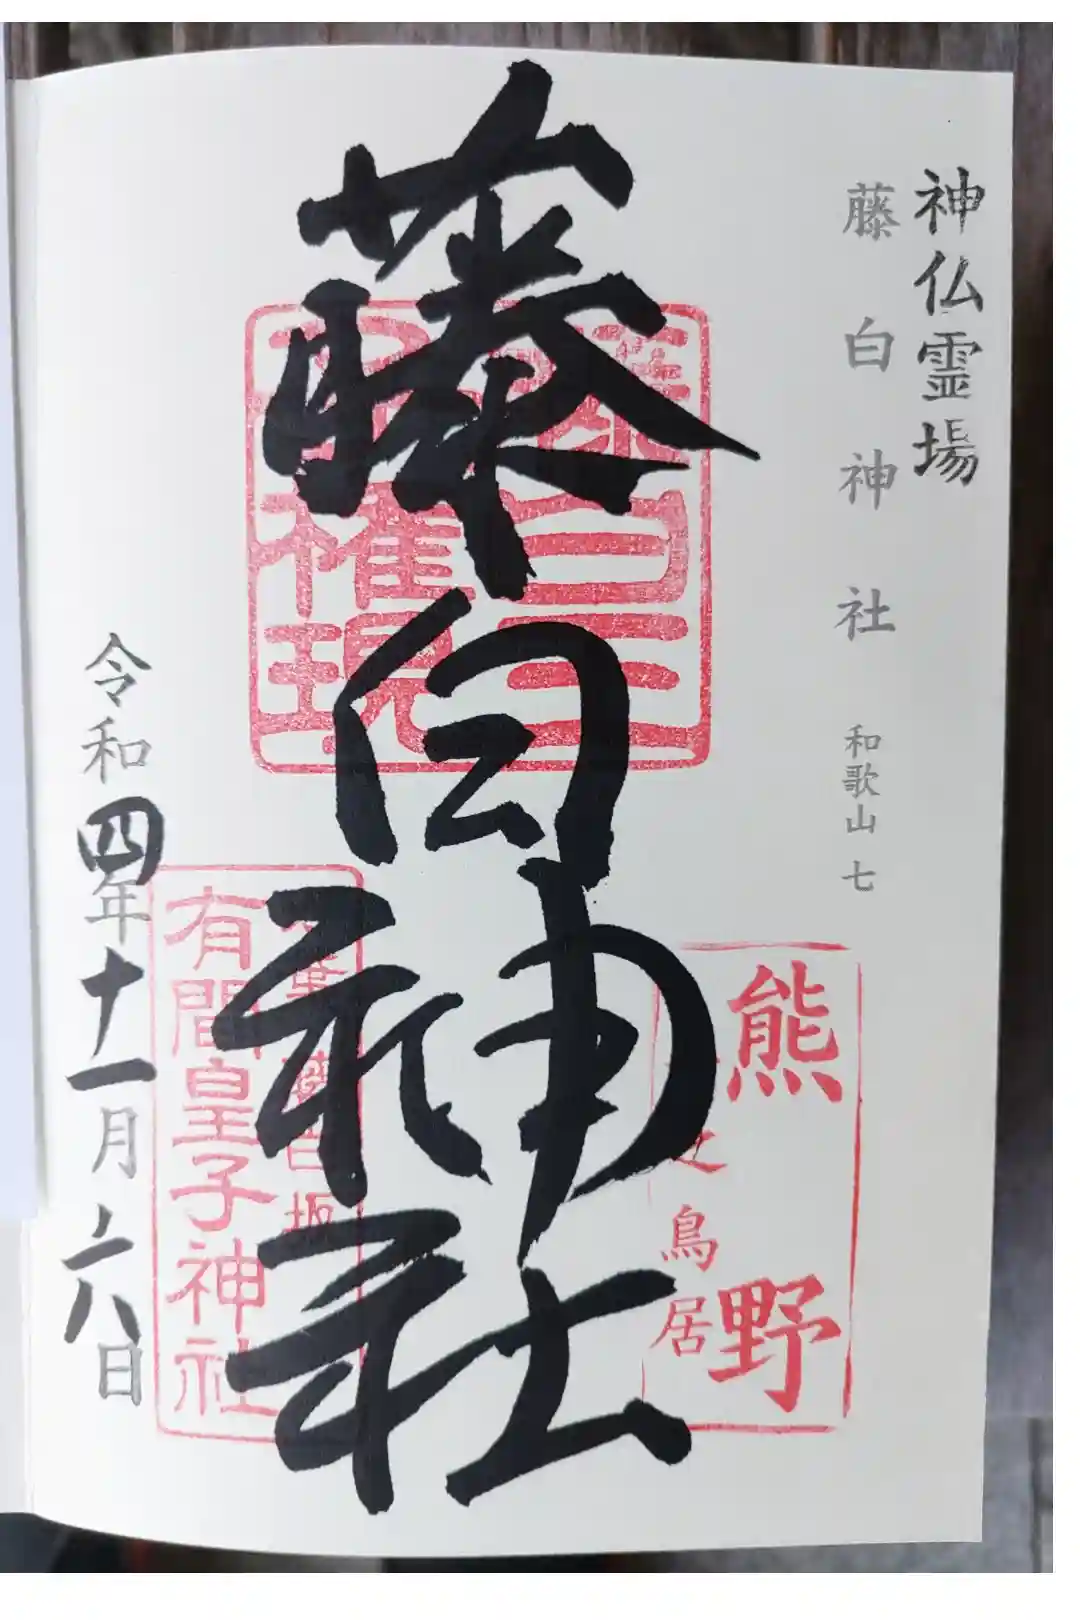 神仏霊場
藤白神社 和歌山 七
熊野
之鳥居
藤白神社
藤白三
権現
有間皇子神社
令和四年十一月六日